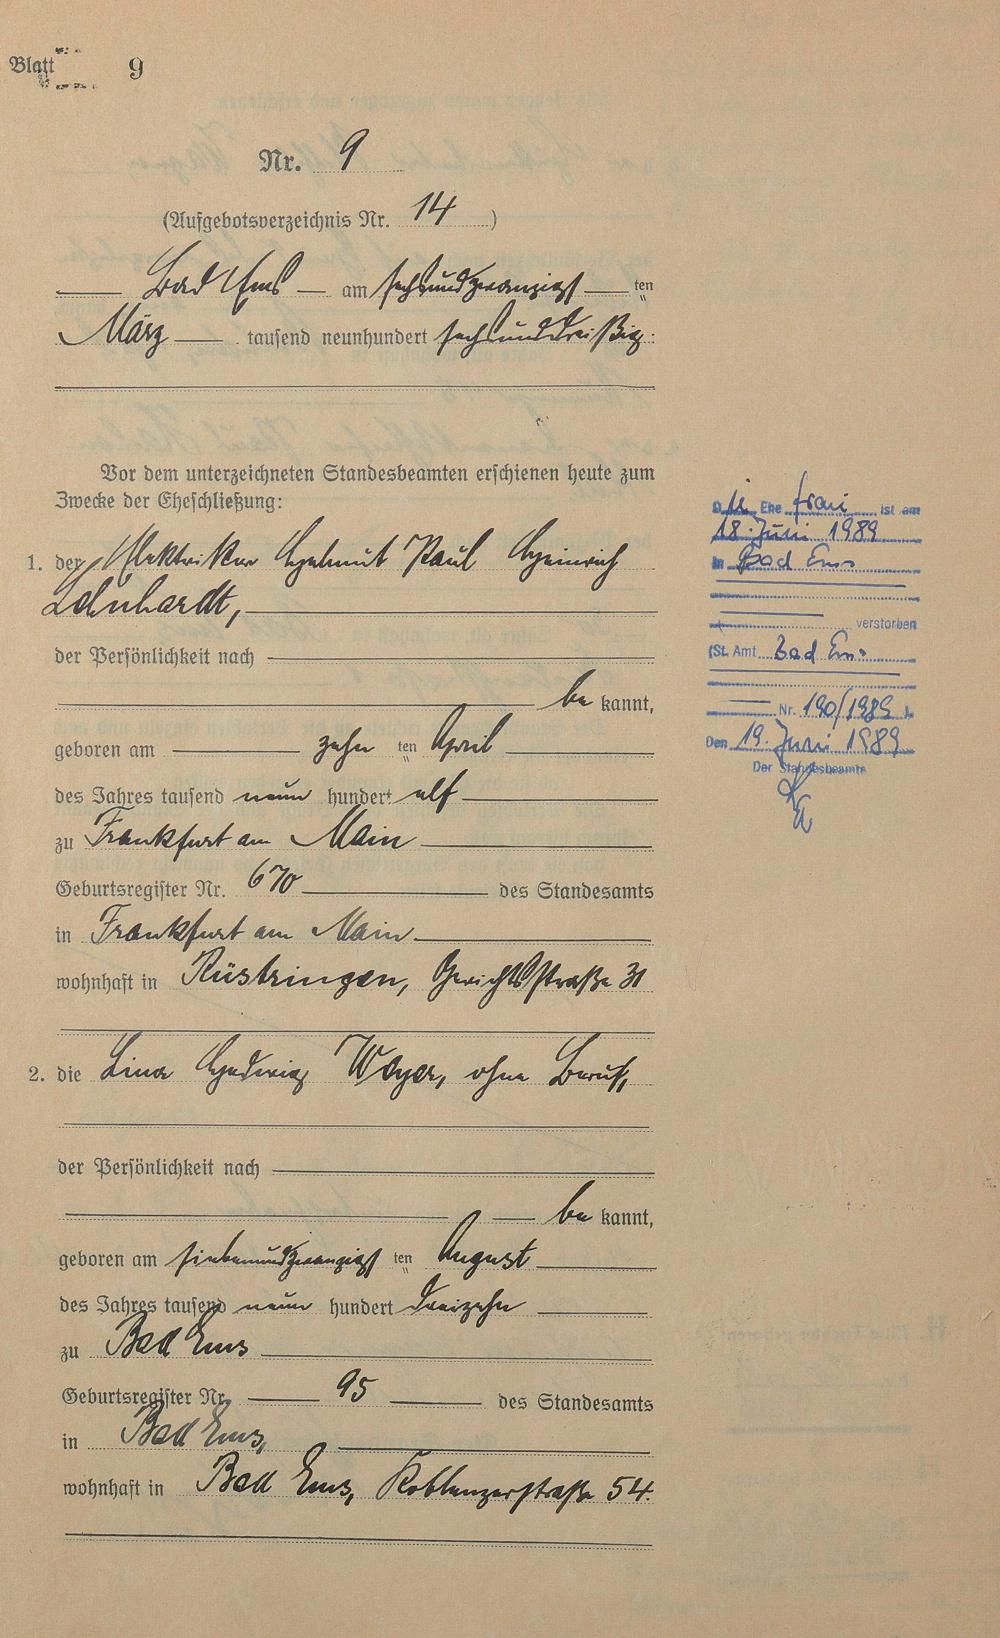 Blatt 9
Nr. 9
(Aufgebotsverzeichnis Nr. 14)
Bad Ems am sechsundzwanzigsten
März tausend neunhundert sechsunddreißig.
Vor dem unterzeichneten Standesbeamten erschienen heute zum
Zwecke der Eheschließung:
1. der Elektriker Helmut Paul Heinrich
Lehnhardt,
der Persönlichkeit nach
bekannt,
geboren am zehnten April
des Jahres tausend neunhundert elf
zu Frankfurt am Main
Geburtsregister Nr. 670 des Standesamts
in Frankfurt am Main
wohnhaft in Rüstringen, Gerichtsstraße 31
2. die Lina Hedwig Weyer, ohne Beruf,
der Persönlichkeit nach
bekannt,
geboren am siebenundzwanzigsten August
des Jahres tausend neunhundert dreizehn
zu Bad Ems
Geburtsregister Nr. 95 des Standesamts
in Bad Ems,
wohnhaft in Bad Ems, Koblenzerstraße 54.
Die Ehefrau ist am
18. Juni 1989
in Bad Ems
verstorben
(St. Amt Bad Ems
Nr. 190/1989).
Den 19. Juni 1989
Der Standesbeamte